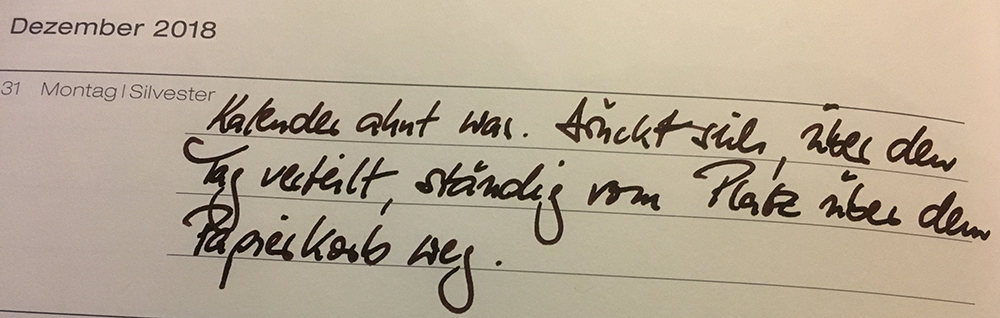 Dezember 2018
31 Montag | Silvester
Kalender ahnt was. Drückt sich, über den
Tag verteilt, ständig vom Platz über dem
Papierkorb weg.